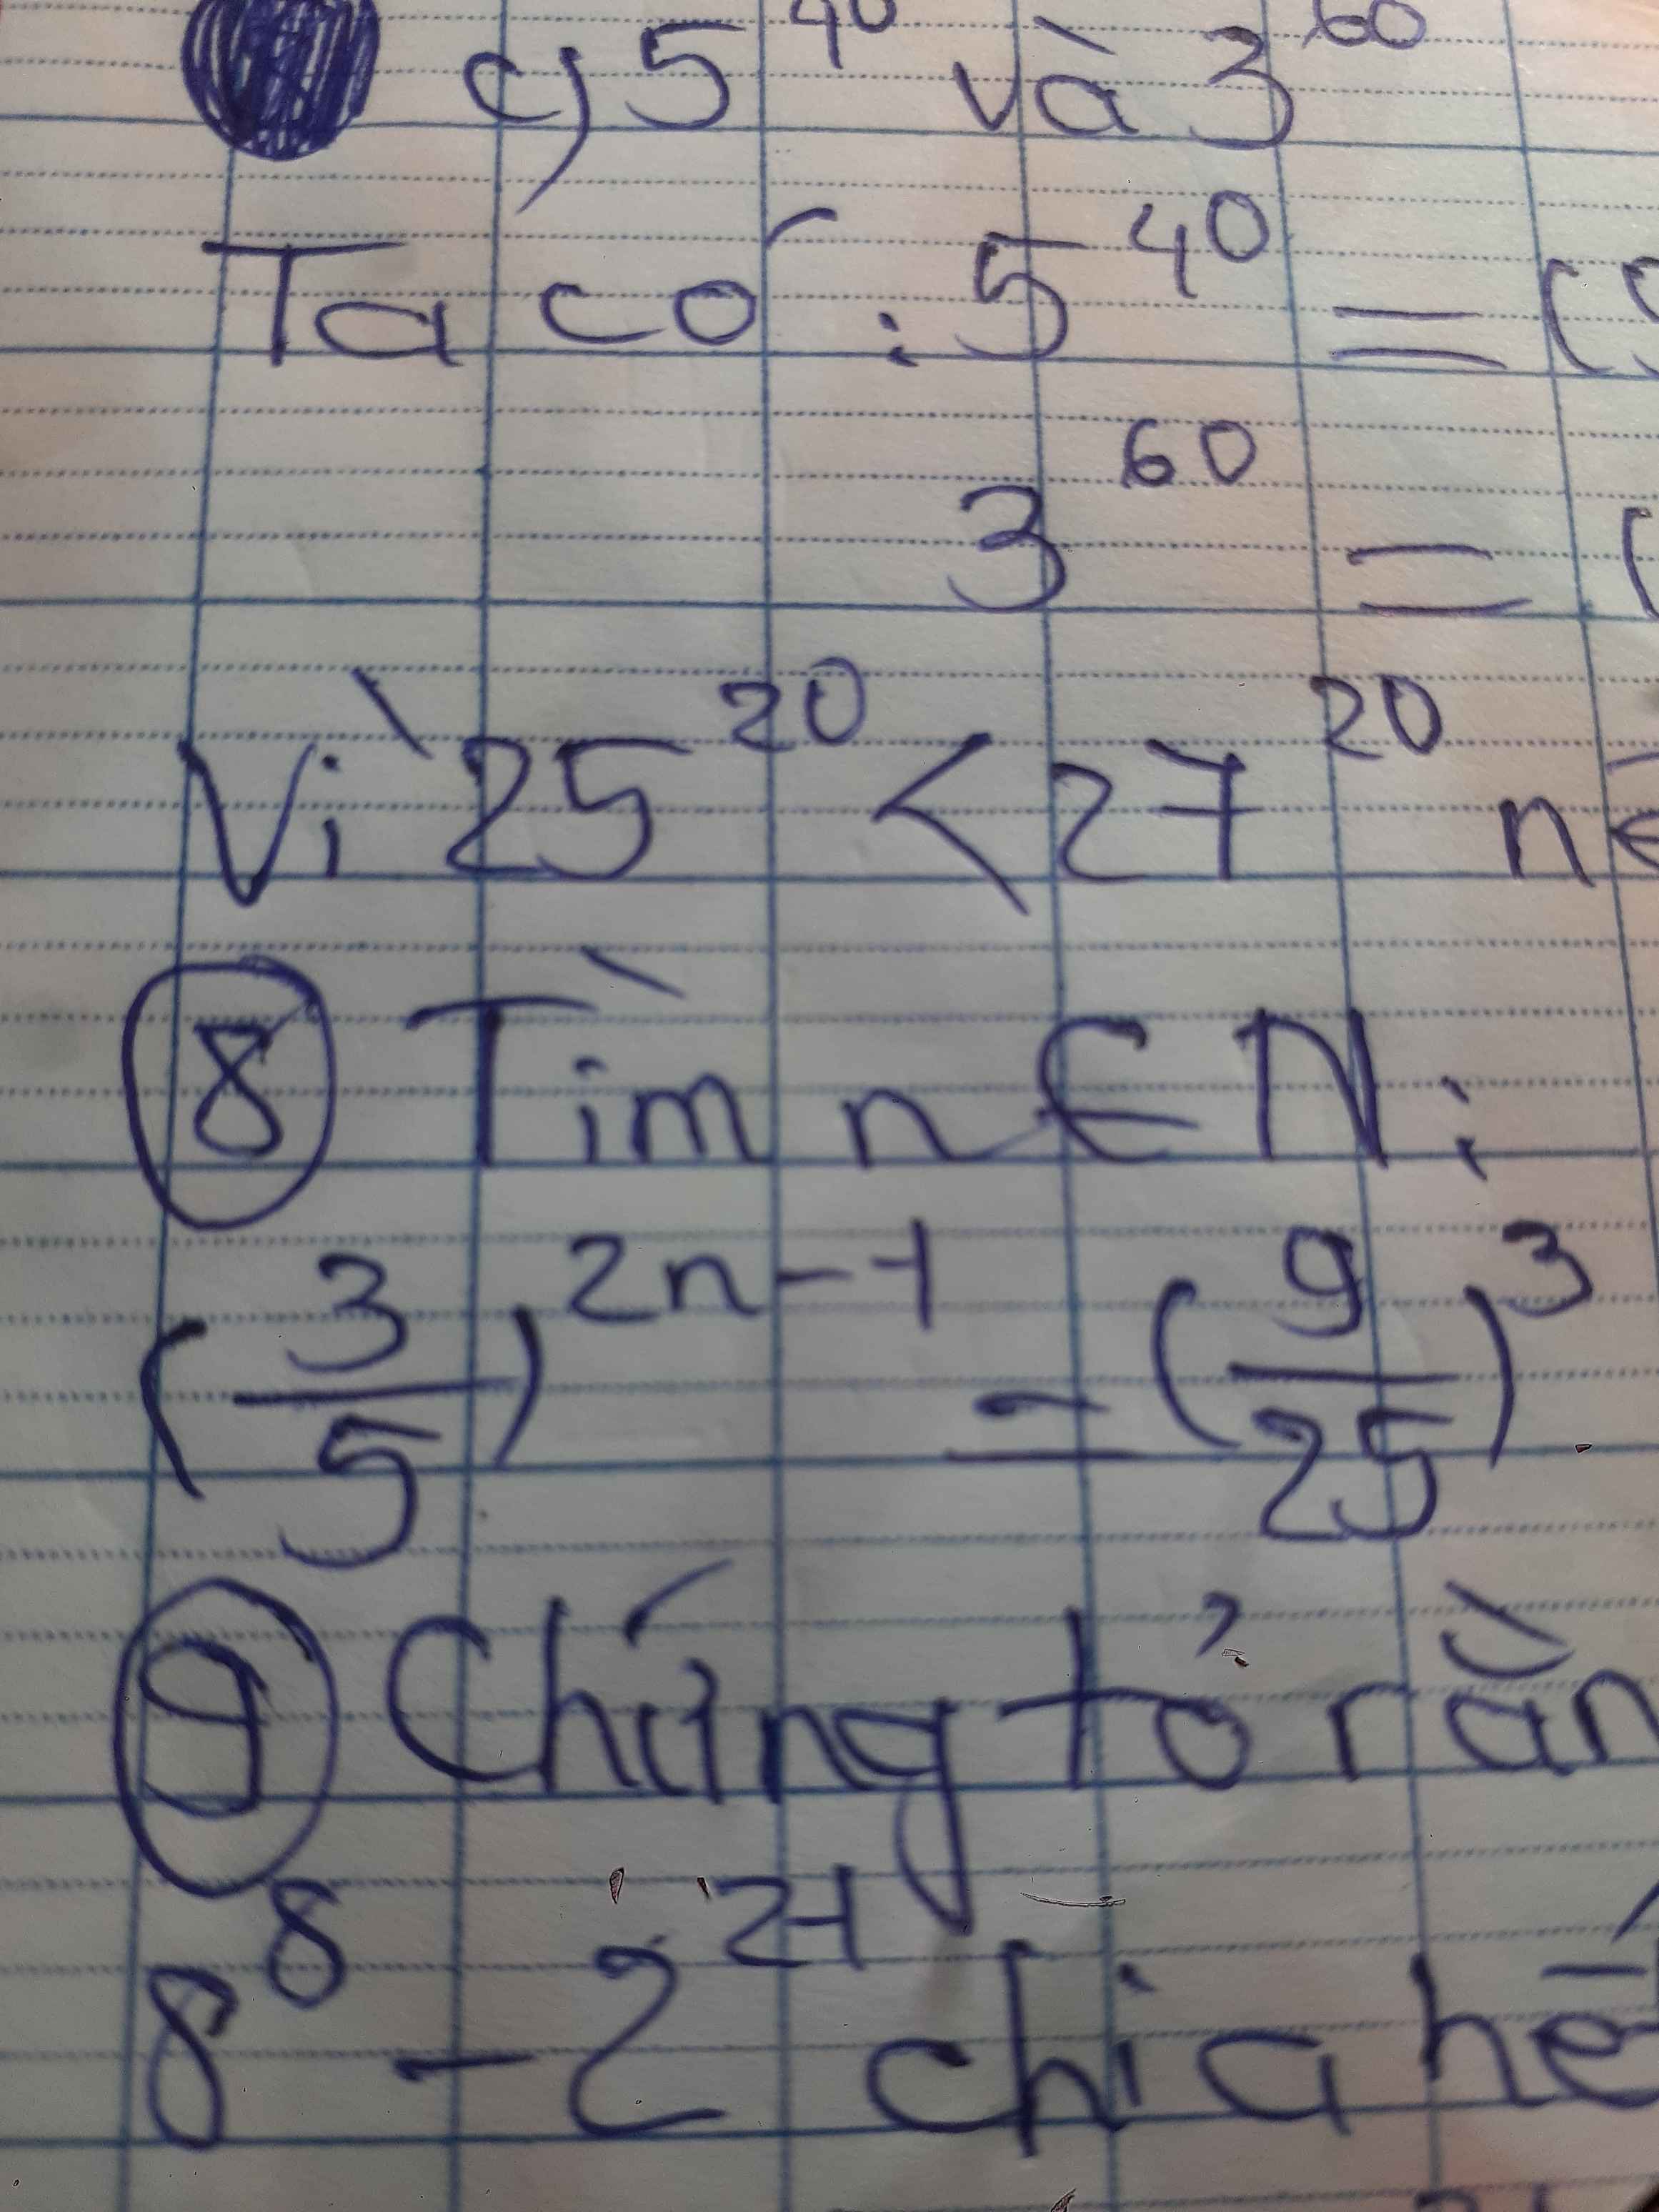 c) 5^40 và 3^60
Ta có: 5^40 = (5
3^60 = (
Vì 25^20 < 27^20 nê
8 Tìm n ∈ N:
(3/5)^2n-1 = (9/25)^3
9 Chứng tỏ rằn
8^8 - 2^21 chia hế